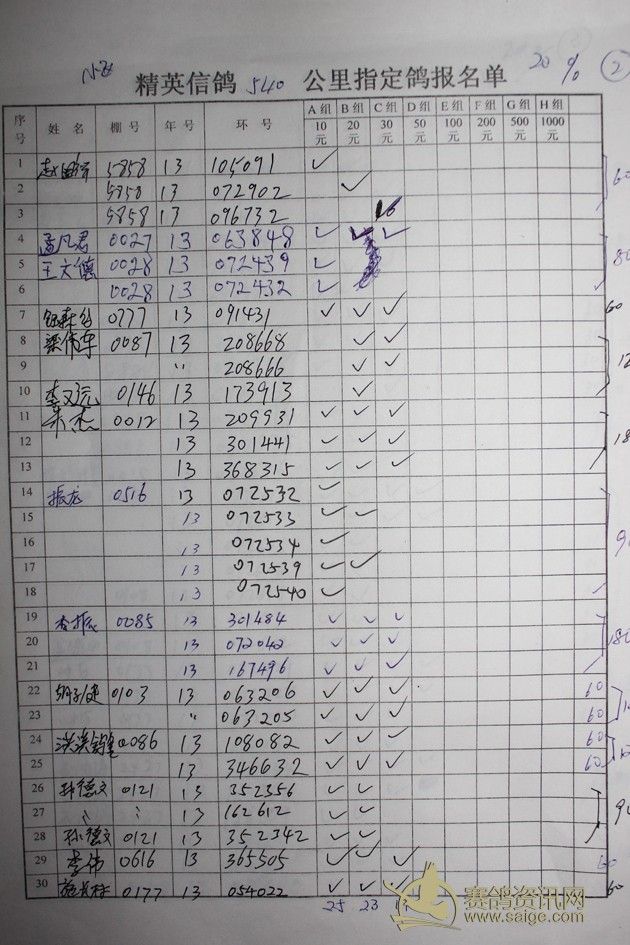 精英信鸽 540 公里指定鸽报名单 20% ②
序号 姓名 棚号 年号 环号 A组 10元 B组 20元 C组 30元 D组 50元 E组 100元 F组 200元 G组 500元 H组 1000元
1 5858 13 105091 ✓
2 5858 13 072902 ✓
3 5858 13 096732
4 孟凡君 0027 13 063848 ✓ ✓ ✓
5 王文德 0028 13 072439 ✓
6 0028 13 072432 ✓
7 0777 13 091431 ✓ ✓ ✓
8 梁伟军 0087 13 208668 ✓ ✓
9 〃 208666 ✓ ✓
10 李文元 0146 13 173913 ✓
11 朱杰 0012 13 209931 ✓ ✓ ✓
12 13 301441 ✓ ✓ ✓
13 13 368315 ✓ ✓ ✓
14 振龙 0516 13 072532 ✓
15 13 072533 ✓ ✓
16 13 072534 ✓
17 13 072539 ✓ ✓
18 13 072540 ✓
19 0085 13 301484 ✓ ✓ ✓
20 13 072042 ✓ ✓ ✓
21 13 167496 ✓ ✓ ✓ 180
22 0103 13 063206 ✓ ✓ ✓ 60
23 〃 063205 ✓ ✓ ✓ 60
24 0086 13 108082 ✓ ✓ ✓ 60
25 13 346632 ✓ ✓ ✓ 60
26 孙德文 0121 13 352356 ✓ ✓
27 13 162612 ✓ ✓
28 孙德文 0121 13 352342 ✓ ✓
29 李伟 0616 13 365505 ✓ ✓ ✓ 60
30 0177 13 054022 ✓ ✓ ✓ 60
25 23
赛鸽资讯网
www.saige.com